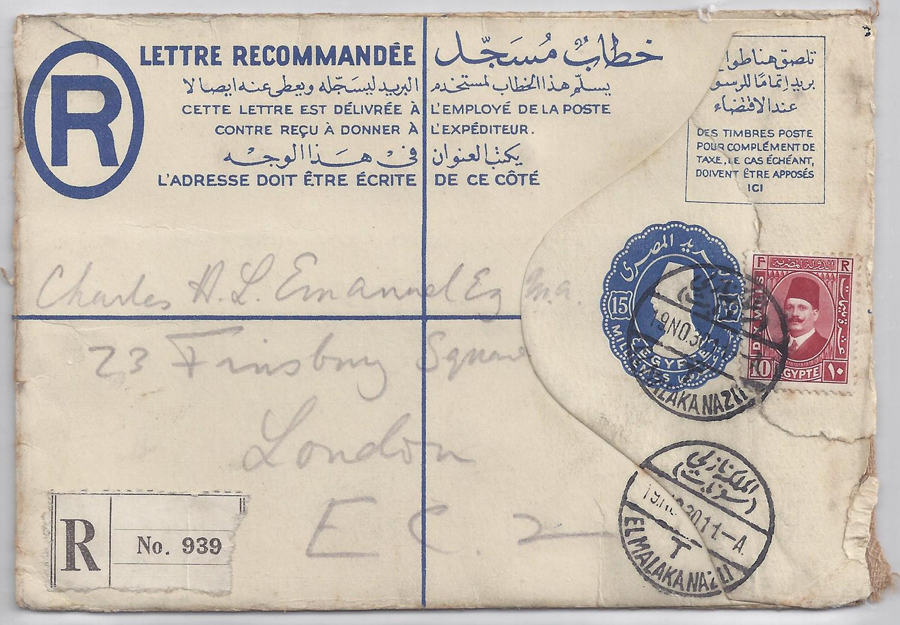 LETTRE RECOMMANDÉE خطاب مُسَجّل
R
يسلّم هذا الخطاب لمستخدم البريد ليسجّله ويعطى عنه ايصالا
CETTE LETTRE EST DÉLIVRÉE À L'EMPLOYÉ DE LA POSTE
CONTRE REÇU À DONNER À L'EXPÉDITEUR.
يكتب العنوان فى هذا الوجه
L'ADRESSE DOIT ÊTRE ÉCRITE DE CE CÔTÉ
تلصق هنا طوابع
بريد إتمامًا للرسوم
عند الاقتضاء
DES TIMBRES POSTE
POUR COMPLÉMENT DE
TAXE, LE CAS ÉCHÉANT,
DOIVENT ÊTRE APPOSÉS
ICI
بريد المصرى
15
EGYPTE
MILLIEMES
F R
الدولة المصرية
MILLS
10 EGYPTE ١٠
19 NO. 30
EL MALAKA NAZLI
Charles H. L. Emanuel Esq M.A.
23 Finsbury Square
London
E C 2
الملكة نازلي
19 NO 30 11-A
T
EL MALAKA NAZLI
R No. 939